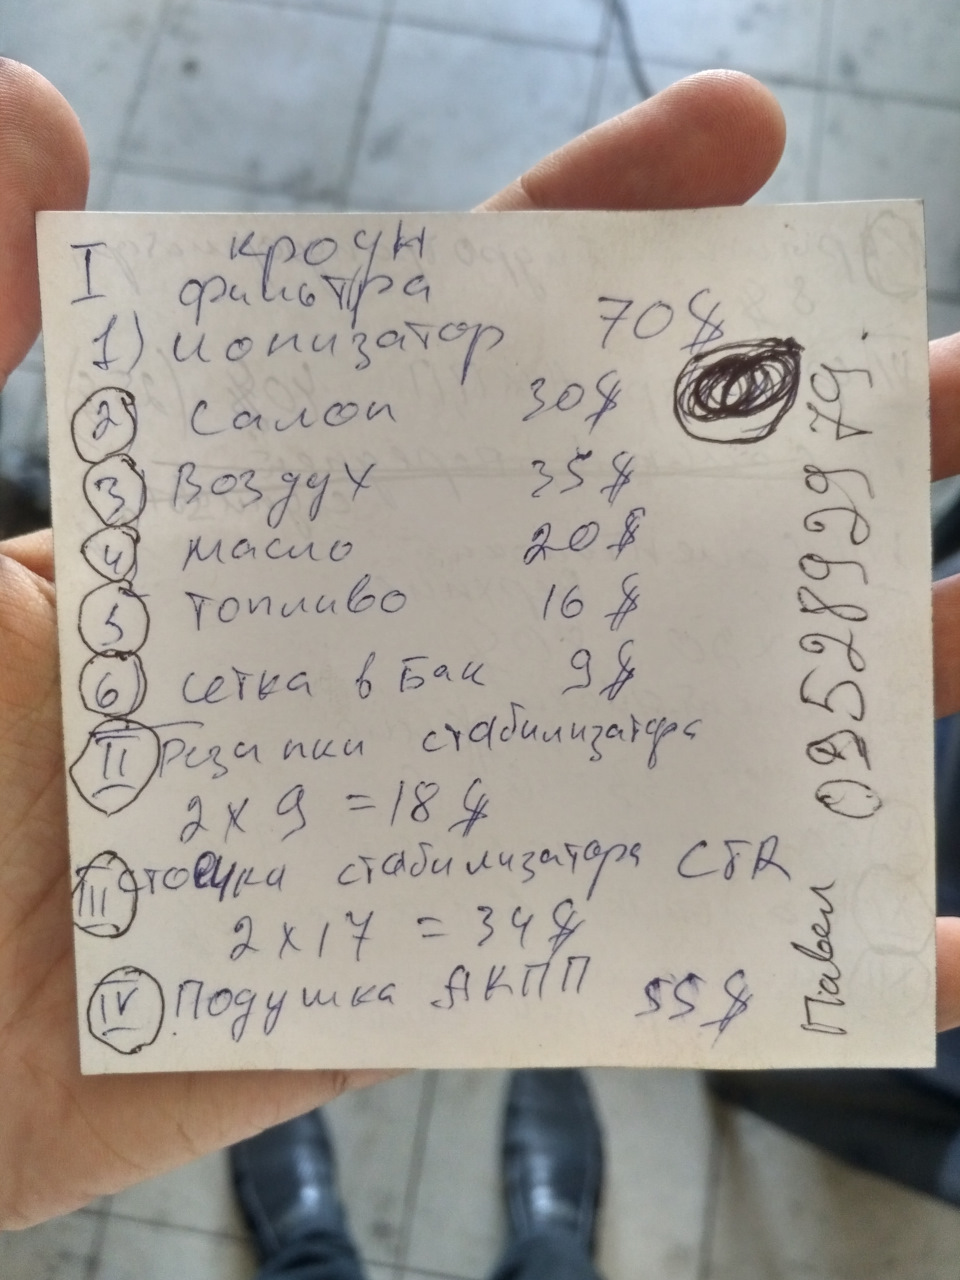 I кроун
фильтра
1) ионизатор 70$
2 салон 30$
3 Воздух 35$
4 масло 20$
5 топливо 16$
6 сетка в Бак 9$
II Резинки стабилизатора
2 x 9 = 18$
III стоечка стабилизатора CTR
2 x 17 = 34$
IV Подушка АКПП 55$
Павел